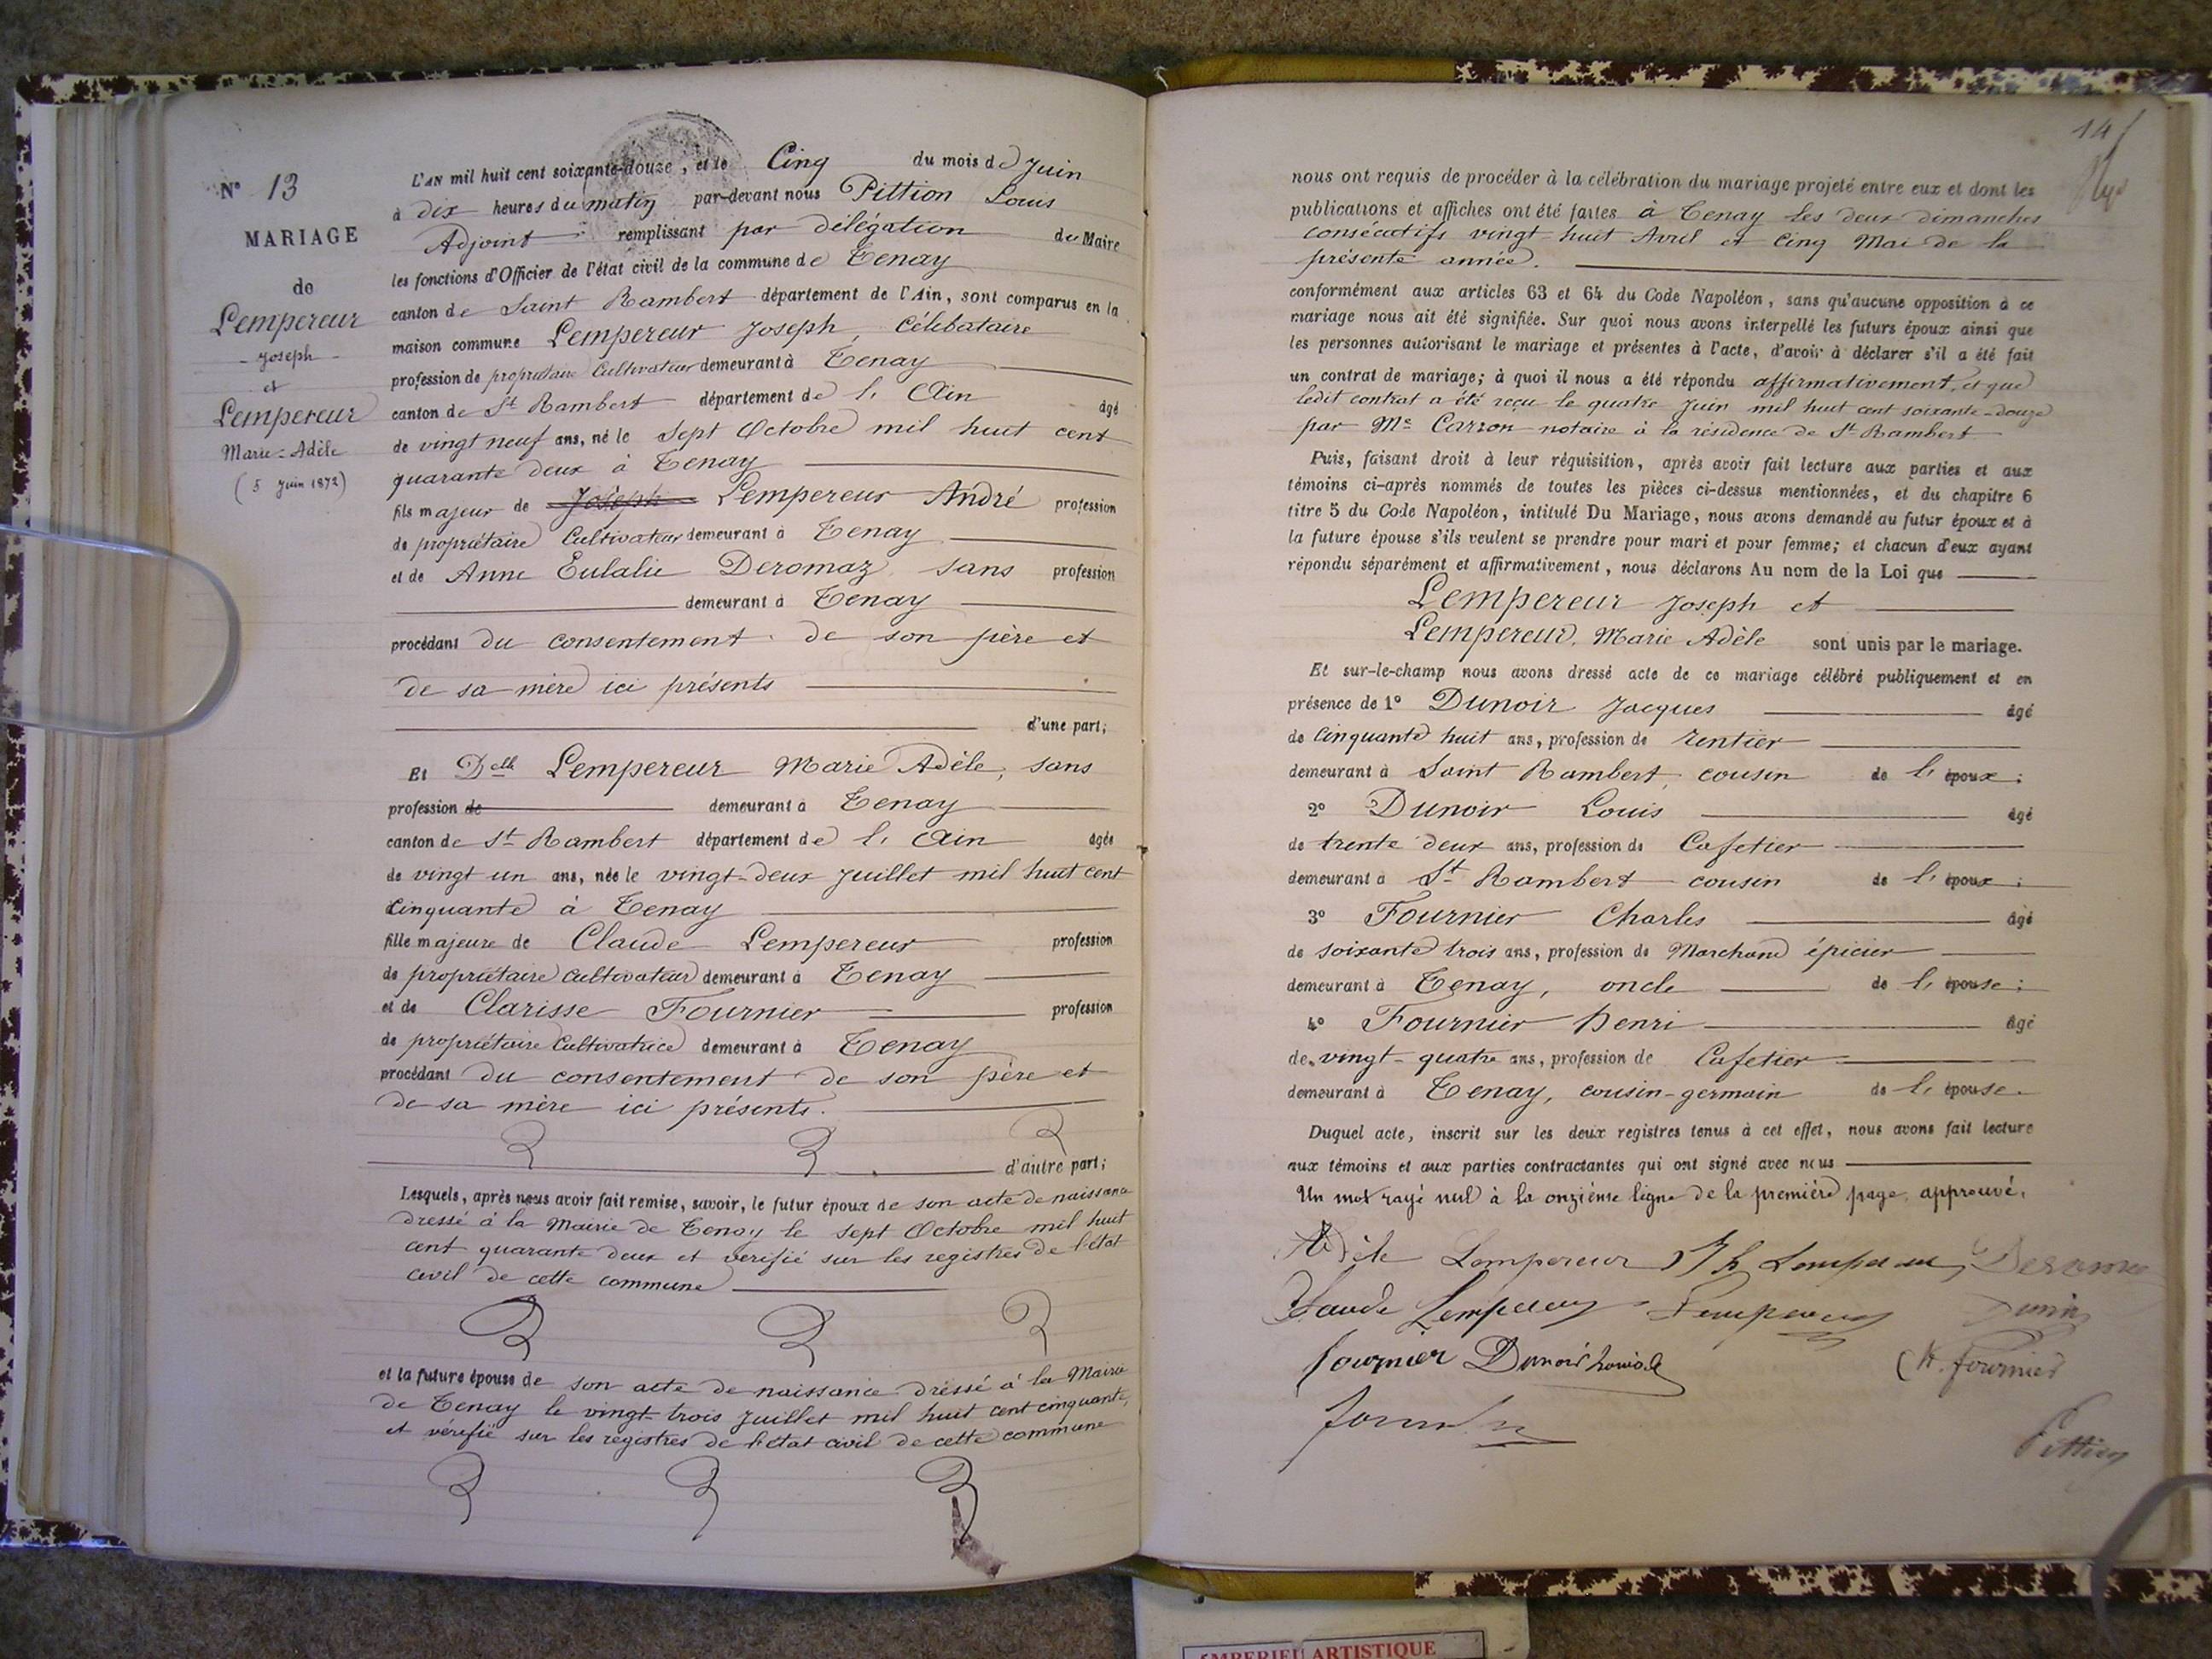 N° 13
MARIAGE
de
Lempereur
Joseph
et
Lempereur
Marie-Adèle
(5 Juin 1872)
L'AN mil huit cent soixante-douze, et le Cinq du mois de Juin
à dix heures du matin par-devant nous Pittion Louis
Adjoint remplissant par délégation du Maire
les fonctions d'Officier de l'état civil de la commune de Tenay
canton de Saint Rambert département de l'Ain, sont comparus en la
maison commune Lempereur Joseph, Célibataire
profession de propriétaire Cultivateur demeurant à Tenay
canton de St Rambert département de l'Ain âgé
de vingt neuf ans, né le Sept Octobre mil huit cent
quarante deux à Tenay
fils majeur de Joseph Lempereur André profession
de propriétaire Cultivateur demeurant à Tenay
et de Anne Eulalie Deromaz sans profession
demeurant à Tenay
procédant du consentement de son père et
de sa mère ici présents
d'une part;
Et Delle Lempereur Marie Adèle, sans
profession de demeurant à Tenay
canton de St Rambert département de l'Ain âgée
de vingt un ans, née le vingt-deux Juillet mil huit cent
cinquante à Tenay
fille majeure de Claude Lempereur profession
de propriétaire cultivateur demeurant à Tenay
et de Clarisse Fournier profession
de propriétaire Cultivatrice demeurant à Tenay
procédant du consentement de son père et
de sa mère ici présents.
d'autre part;
Lesquels, après nous avoir fait remise, savoir, le futur époux de son acte de naissance
dressé à la Mairie de Tenay le sept Octobre mil huit
cent quarante deux et vérifié sur les registres de l'état
civil de cette commune
et la future épouse de son acte de naissance dressé à la Mairie
de Tenay le vingt-trois Juillet mil huit cent cinquante,
et vérifié sur les registres de l'état civil de cette commune
14
nous ont requis de procéder à la célébration du mariage projeté entre eux et dont les
publications et affiches ont été faites à Tenay les deux dimanches
consécutifs vingt-huit Avril et Cinq Mai de la
présente année.
conformément aux articles 63 et 64 du Code Napoléon, sans qu'aucune opposition à ce
mariage nous ait été signifiée. Sur quoi nous avons interpellé les futurs époux ainsi que
les personnes autorisant le mariage et présentes à l'acte, d'avoir à déclarer s'il a été fait
un contrat de mariage; à quoi il nous a été répondu affirmativement, et que
ledit contrat a été reçu le quatre Juin mil huit cent soixante-douze
par Me Carron notaire à la résidence de St Rambert
Puis, faisant droit à leur réquisition, après avoir fait lecture aux parties et aux
témoins ci-après nommés de toutes les pièces ci-dessus mentionnées, et du chapitre 6
titre 5 du Code Napoléon, intitulé Du Mariage, nous avons demandé au futur époux et à
la future épouse s'ils veulent se prendre pour mari et pour femme; et chacun d'eux ayant
répondu séparément et affirmativement, nous déclarons Au nom de la Loi que
Lempereur Joseph et
Lempereur, Marie Adèle sont unis par le mariage.
Et sur-le-champ nous avons dressé acte de ce mariage célébré publiquement et en
présence de 1° Dunoir Jacques âgé
de Cinquante huit ans, profession de rentier
demeurant à Saint Rambert, cousin de l'époux;
2° Dunoir Louis âgé
de trente deux ans, profession de Cafetier
demeurant à St Rambert cousin de l'époux;
3° Fournier Charles âgé
de soixante trois ans, profession de Marchand épicier
demeurant à Tenay, oncle de l'épouse;
4° Fournier Henri âgé
de vingt-quatre ans, profession de Cafetier
demeurant à Tenay, cousin-germain de l'épouse.
Duquel acte, inscrit sur les deux registres tenus à cet effet, nous avons fait lecture
aux témoins et aux parties contractantes qui ont signé avec nous
Un mot rayé nul à la onzième ligne de la première page, approuvé.
Adèle Lempereur Jh Lempereur Deromaz
Claude Lempereur Lempereur Dunoir
Fournier Dunoir Louis H. Fournier
Pittion
AMBERIEU ARTISTIQUE